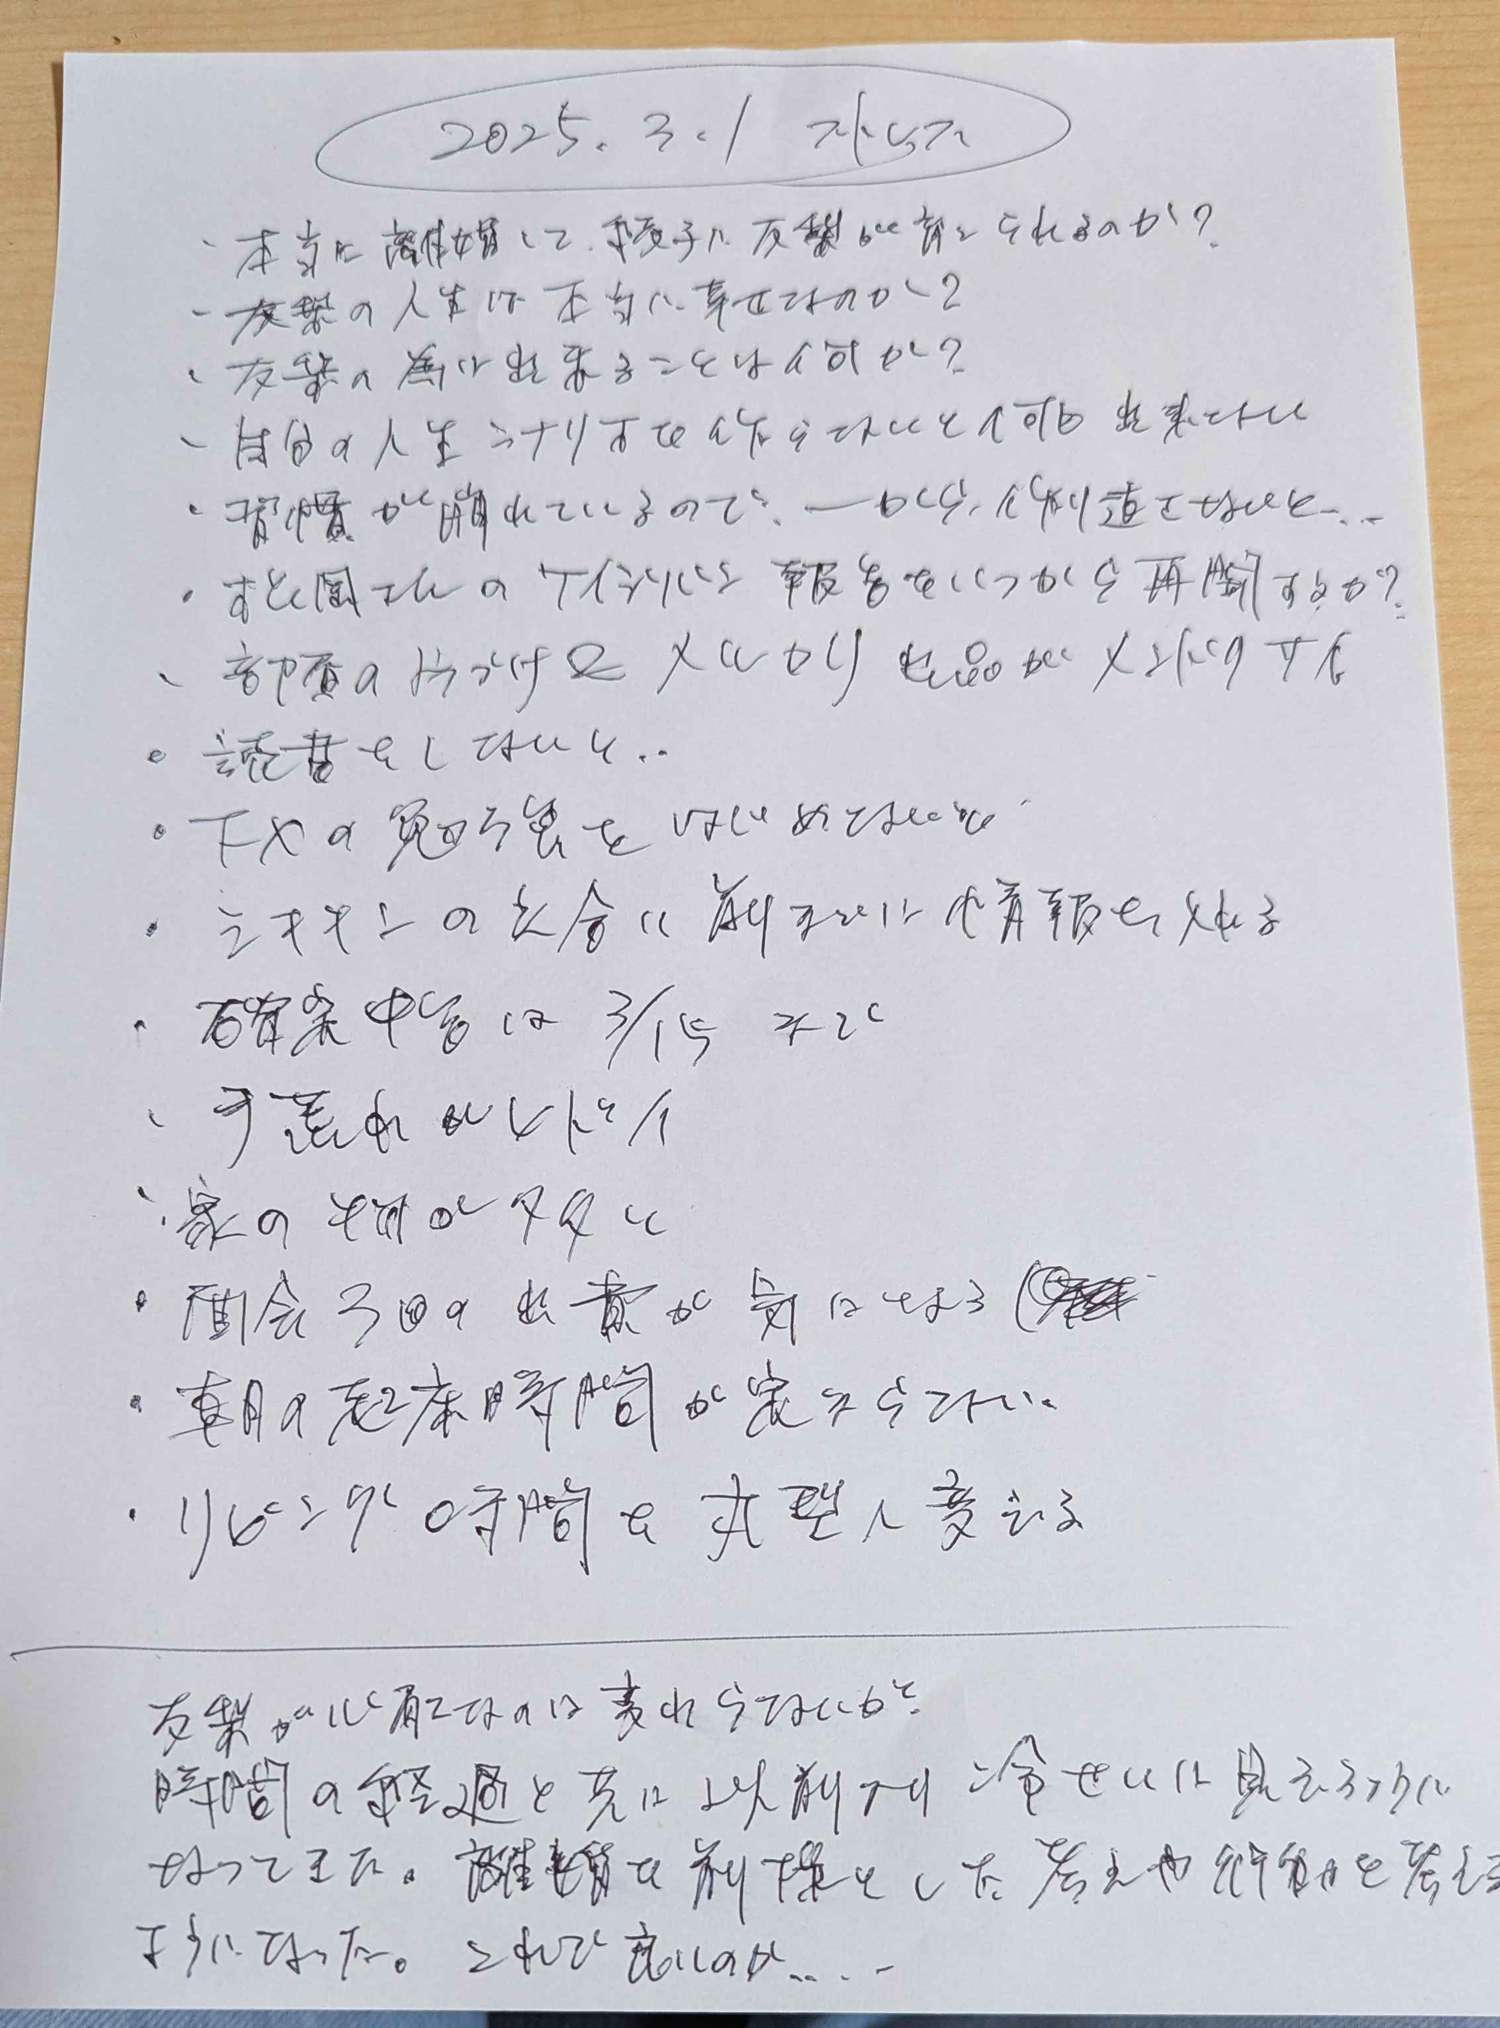 2025.3.1
・本当に離婚して、友梨が育てられるのか?
・友梨の人生は本当に幸せなのか?
・友梨の為に出来ることは何か?
・自分の人生シナリオを作らないと何も出来ない
・習慣が崩れているので、一から作り直さないと...
・さんの 報告をいつから再開するか?
・部屋の片づけとメルカリ出品がメンドウすぎ
・読書をしないと..
・FXの勉強をはじめてないな
・の会に前までに情報を入れる
・確定申告は3/15まで
・手荒れがヒドイ
・家の物が多い
・面会3回の出費が気になる(
・朝の起床時間が定まらない。
・リビング時間を大理へ変える
友梨が心配なのは変わらないが、
時間の経過と共に以前より冷せいに見えるように
なってきた。離婚を前提とした考えや行動を考える
ようになった。これで良いのか....